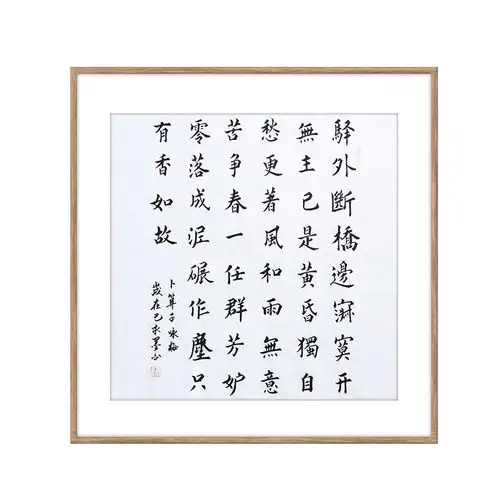 驛外斷橋邊寂寞开
無主已是黃昏獨自
愁更著風和雨無意
苦争春一任群芳妒
零落成泥碾作塵只
有香如故
卜算子咏梅
歲在己亥墨心